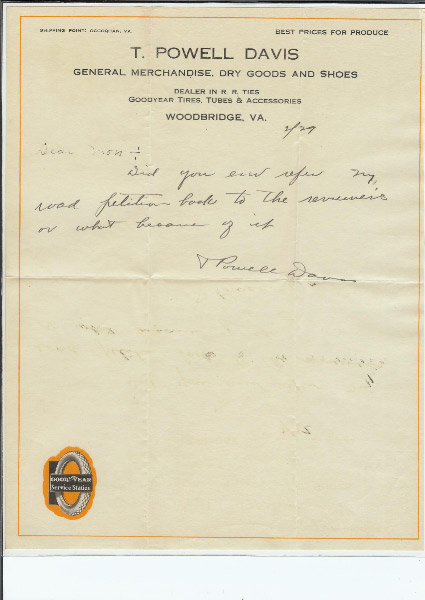 SHIPPING POINT: OCCOQUAN, VA.
BEST PRICES FOR PRODUCE
T. POWELL DAVIS
GENERAL MERCHANDISE, DRY GOODS AND SHOES
DEALER IN R. R. TIES
GOODYEAR TIRES, TUBES & ACCESSORIES
WOODBRIDGE, VA.
2/29
Dear
Did you ever refer my
road petition back to the reviewers
or what became of it
T Powell Davis
GOODYEAR
Service Station